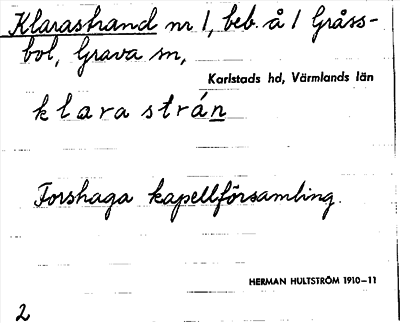 Klarastrand nr 1, beb. å 1 Gråss-
bol, Grava sn,
Karlstads hd, Värmlands län
klara strán
Forshaga kapellförsamling.
HERMAN HULTSTRÖM 1910–11
2